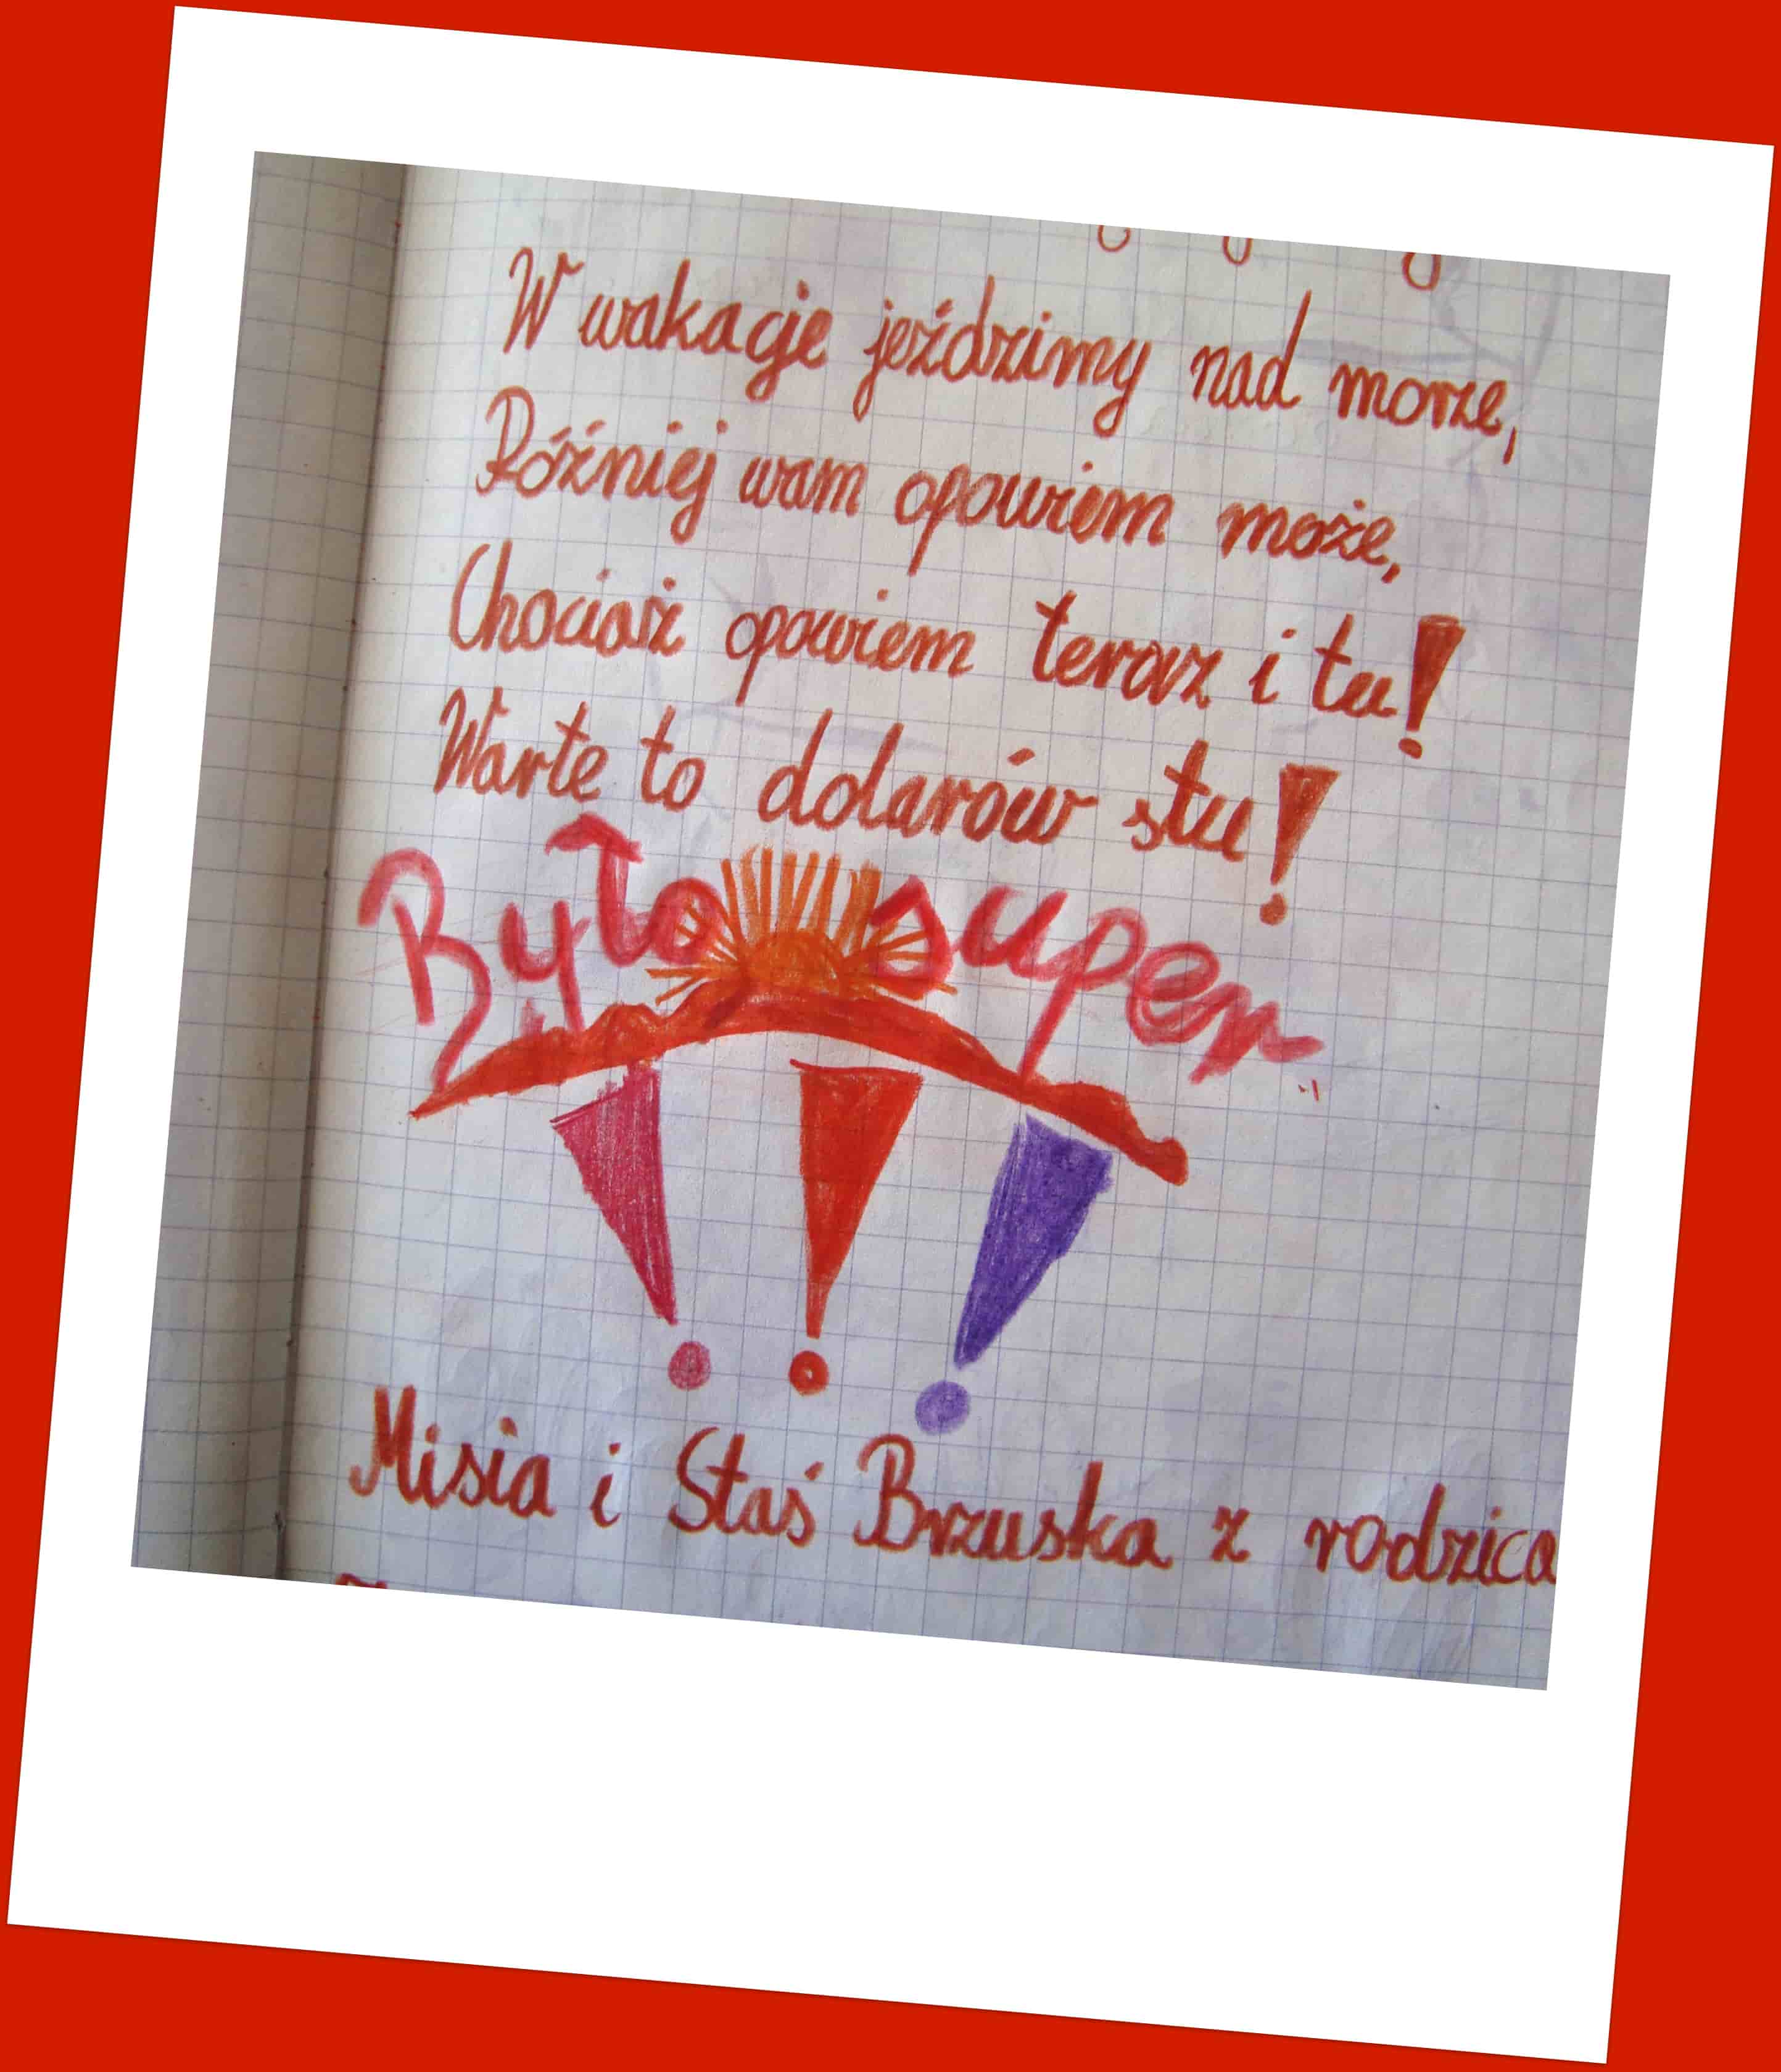 W wakacje jeździmy nad morze,
Później wam opowiem może,
Chociaż opowiem teraz i tu!
Warte to dolarów stu!
Było super
!!!
Misia i Staś Brzuska z rodzica